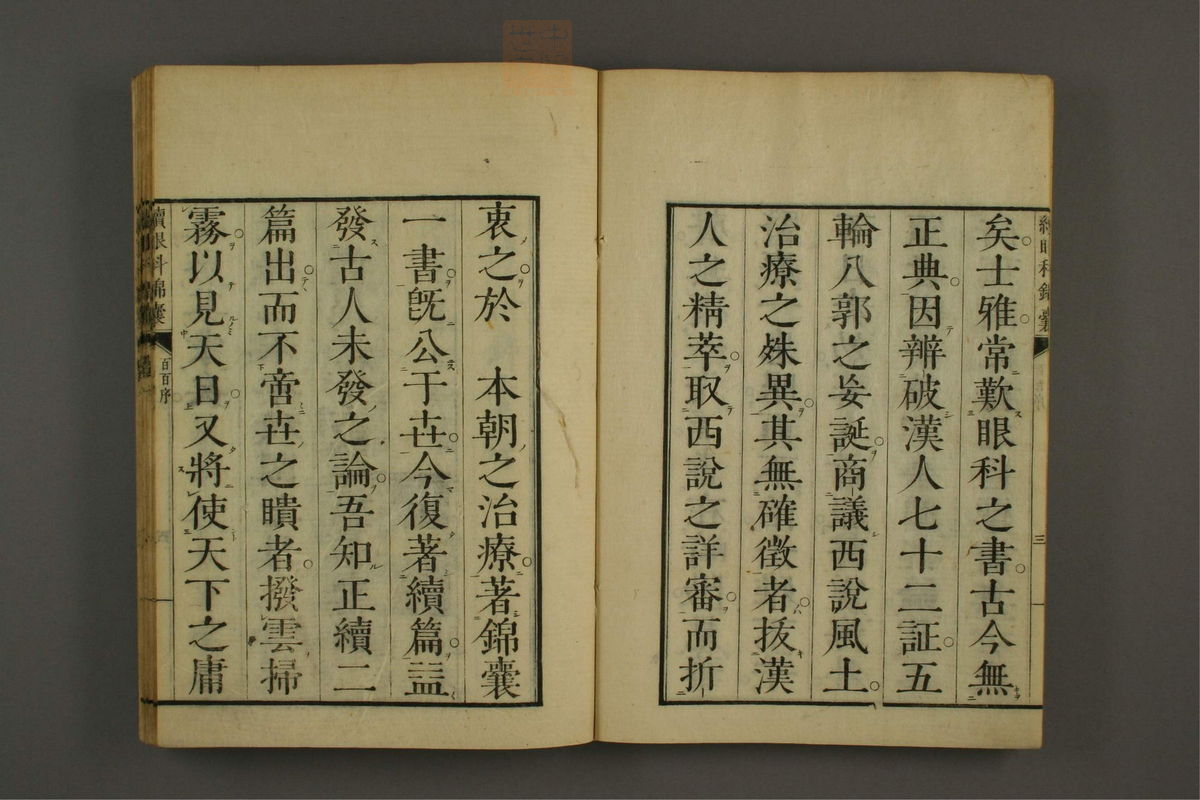 矣士雅常歎眼科之書古今無
正典因辨破漢人七十二証五
輪八郭之妄誕商議西說風土
治療之殊異其無確徵者拔漢
人之精萃取西說之詳審而折
三
衷之於　本朝之治療著錦囊
一書既公于世今復著續篇盖
發古人未發之論吾知正續二
篇出而不啻世之瞶者撥雲掃
霧以見天日又將使天下之庸
續眼科錦囊
百百序